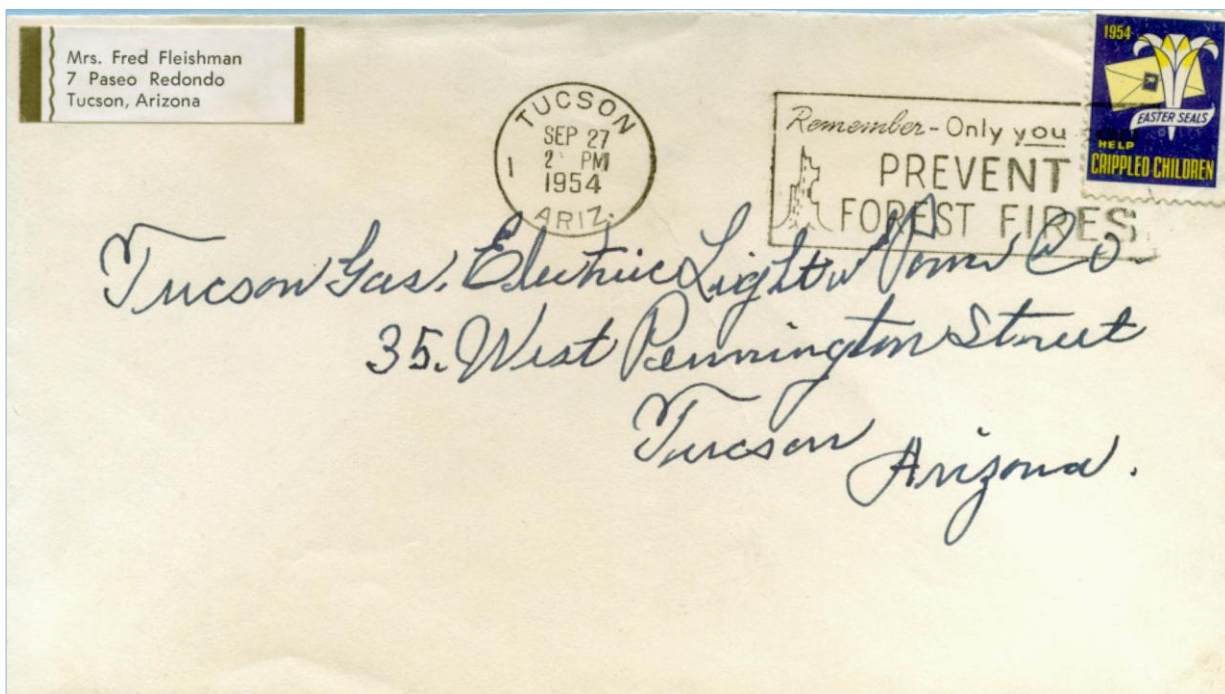 Mrs. Fred Fleishman
7 Paseo Redondo
Tucson, Arizona
TUCSON
SEP 27
2 PM
1
1954
ARIZ.
Remember - Only you
PREVENT
FOREST FIRES
1954
EASTER SEALS
HELP
CRIPPLED CHILDREN
Tucson Gas, Electric Light & Power Co
35. West Pennington Street
Tucson
Arizona.